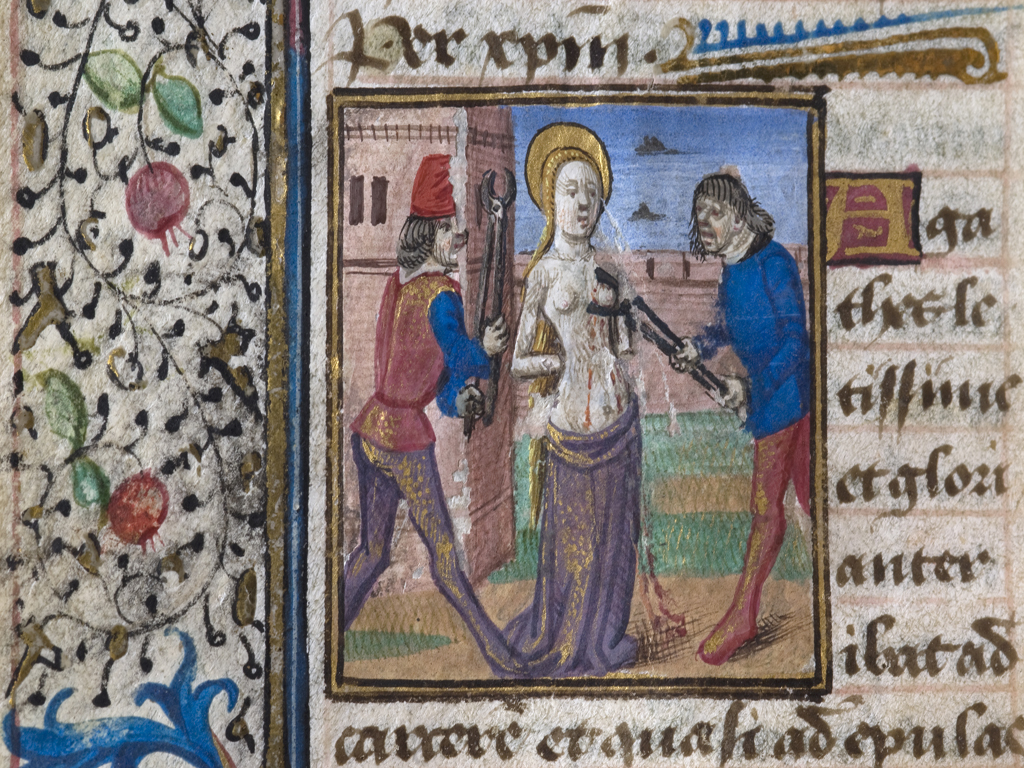 Per xpm̄.
Aga
thes le
tissime
et glori
anter
ibat ad
carcerē et quasi ad epulas